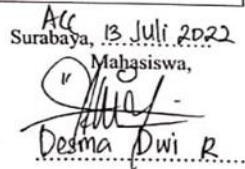 Acc
Surabaya, 13 Juli 2022
Mahasiswa,
Desma Dwi R